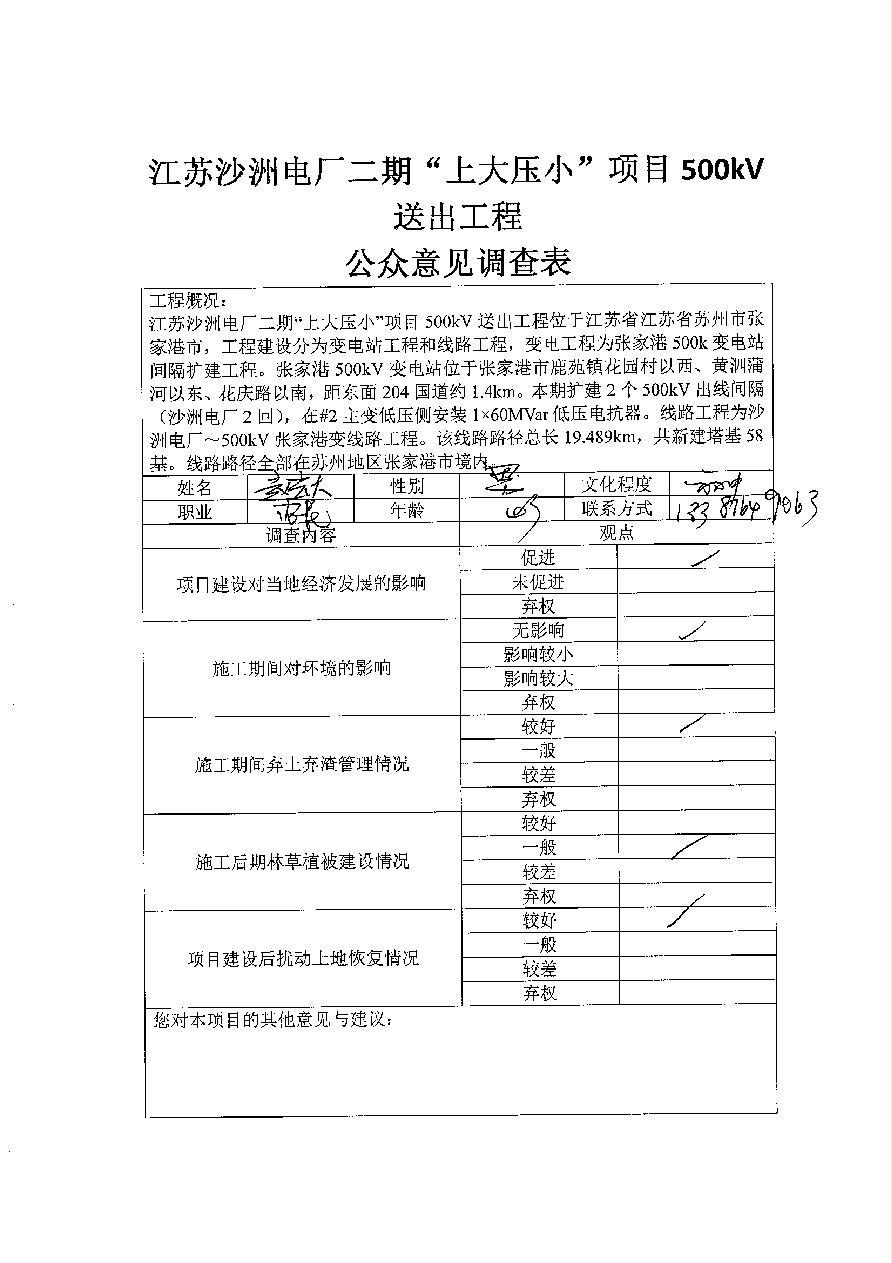 江苏沙洲电厂二期“上大压小”项目 500kV
送出工程
公众意见调查表
工程概况：
江苏沙洲电厂二期“上大压小”项目 500kV 送出工程位于江苏省江苏省苏州市张
家港市，工程建设分为变电站工程和线路工程，变电工程为张家港 500k 变电站
间隔扩建工程。张家港 500kV 变电站位于张家港市鹿苑镇花园村以西、黄泗蒲
河以东、花庆路以南，距东面 204 国道约 1.4km。本期扩建 2 个 500kV 出线间隔
（沙洲电厂 2 回），在#2 主变低压侧安装 1×60MVar 低压电抗器。线路工程为沙
洲电厂～500kV 张家港变线路工程。该线路路径总长 19.489km，共新建塔基 58
基。线路路径全部在苏州地区张家港市境内。
姓名 性别 文化程度
职业 年龄 联系方式
调查内容 观点
项目建设对当地经济发展的影响
促进 ✓
未促进
弃权
施工期间对环境的影响
无影响 ✓
影响较小
影响较大
弃权
施工期间弃土弃渣管理情况
较好 ✓
一般
较差
弃权
施工后期林草植被建设情况
较好
一般 ✓
较差
弃权
项目建设后扰动土地恢复情况
较好 ✓
一般
较差
弃权
您对本项目的其他意见与建议：